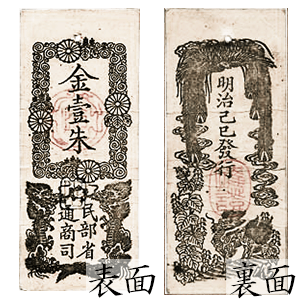 金壹朱
民部省
通商司
表面
明治己巳發行
裏面